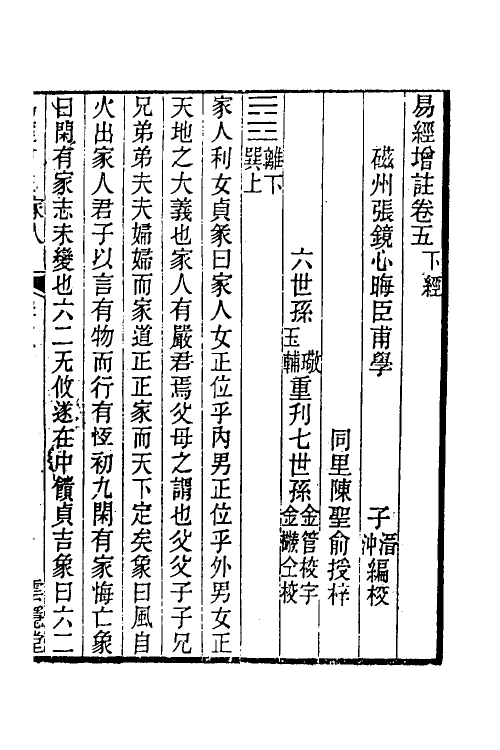 易經增註卷五 下經
磁州張鏡心晦臣甫學 子潛沖編校
同里陳聖俞授梓
六世孫玉輔敬重刊七世孫金管校字金礮仝校
離下巽上
家人利女貞彖曰家人女正位乎內男正位乎外男女正
天地之大義也家人有嚴君焉父母之謂也父父子子兄
兄弟弟夫夫婦婦而家道正正家而天下定矣象曰風自
火出家人君子以言有物而行有恆初九閑有家悔亡象
曰閑有家志未變也六二无攸遂在中饋貞吉象曰六二
家人
雲隱堂